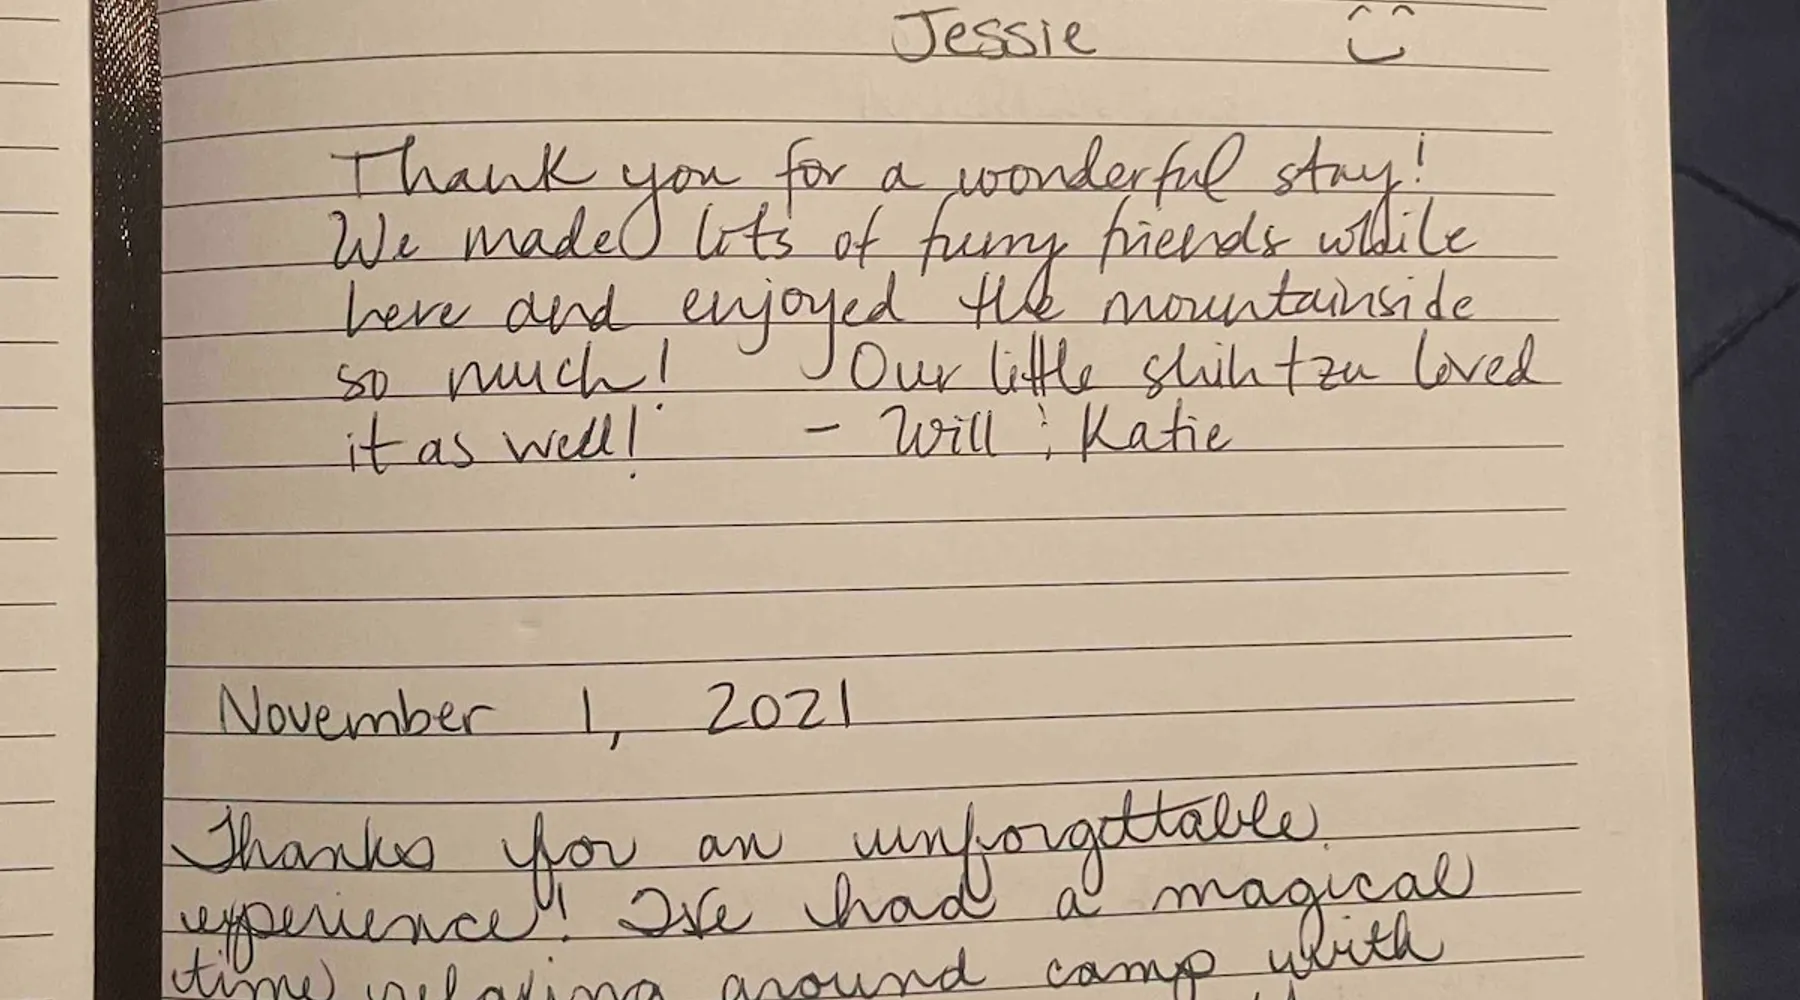 Jessie
Thank you for a wonderful stay!
We made lots of furry friends while
here and enjoyed the mountainside
so much! Our little shih tzu loved
it as well! - Will & Katie
November 1, 2021
Thanks for an unforgettable
experience! We had a magical
time relaxing around camp with